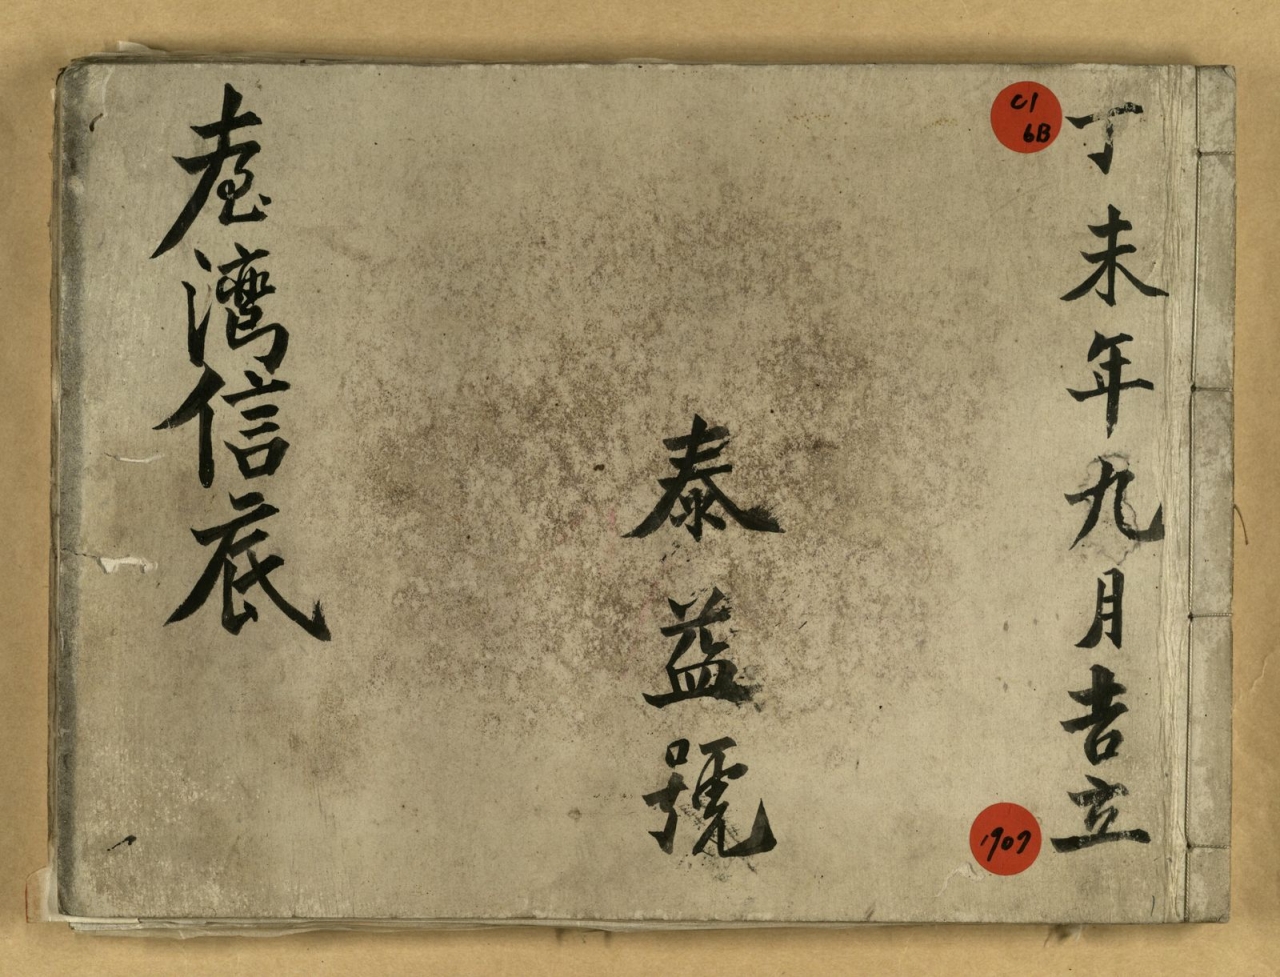 丁未年九月吉立
C1
6B
1907
泰益號
臺灣信底